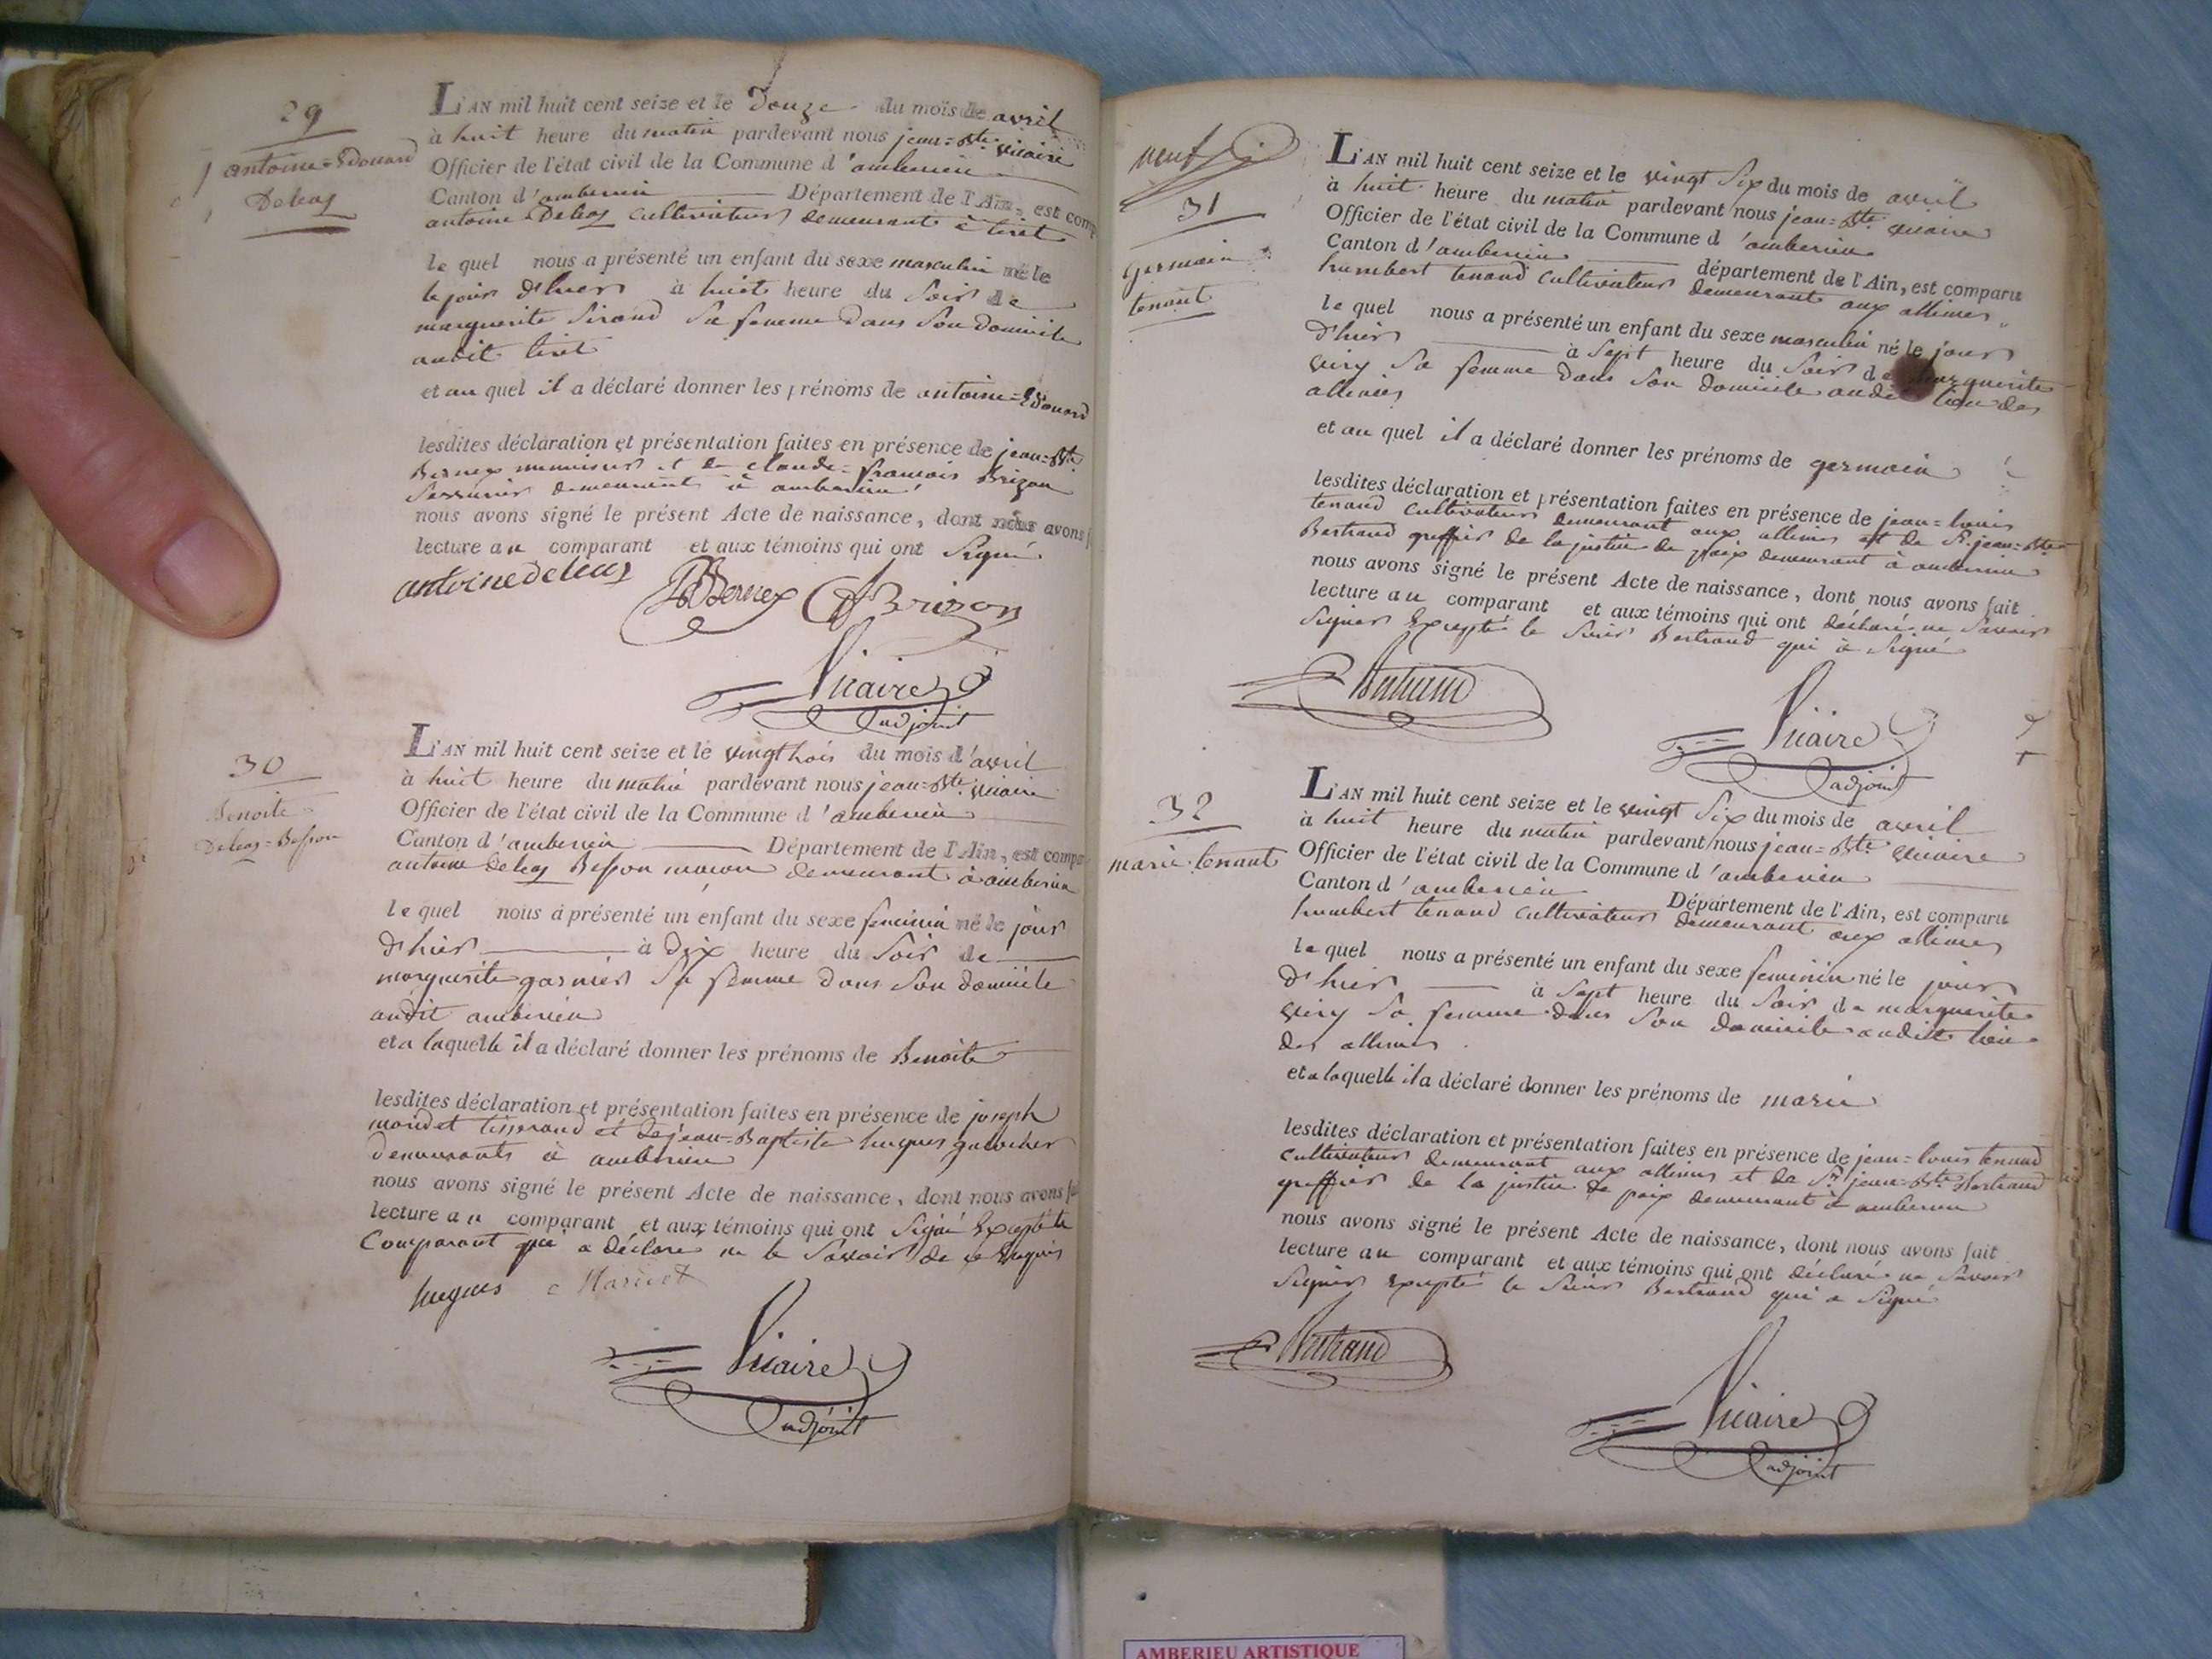 29
antoine=Edouard
Deleas
L'AN mil huit cent seize et le Douze du mois de avril
à huit heure du matin pardevant nous jean=Bte. vicaire
Officier de l'état civil de la Commune d'amberieu
Canton d'amberieu Département de l'Ain, est comp
antoine Deleas cultivateur demeurant à tiret
le quel nous a présenté un enfant du sexe masculin né le
le jour d'hier à huit heure du soir de
marguerite Sirand Sa femme dans son domicile
audit tiret
et au quel il a déclaré donner les prénoms de antoine=Edouard
lesdites déclaration et présentation faites en présence de jean=Bte
Bernex menuisier et de claude=françois Brizon
Serrurier demeurant à amberieu
nous avons signé le présent Acte de naissance, dont nous avons f
lecture au comparant et aux témoins qui ont Signé
antoine deleas Bernex Brizon
Vicaire
adjoint
30
Benoite
Deleas=Besson
L'AN mil huit cent seize et le vingt trois du mois d'avril
à huit heure du matin pardevant nous jean=Bte. vicaire
Officier de l'état civil de la Commune d'amberieu
Canton d'amberieu Département de l'Ain, est compa
antoine Deleas Besson maçon demeurant à amberieu
le quel nous a présenté un enfant du sexe feminin né le jour
d'hier à dix heure du Soir de
marguerite garnier Sa femme dans Son domicile
audit amberieu
et a laquelle il a déclaré donner les prénoms de Benoite
lesdites déclaration et présentation faites en présence de joseph
tisserand et de jean=Baptiste hugues
demeurants à amberieu
nous avons signé le présent Acte de naissance, dont nous avons fai
lecture au comparant et aux témoins qui ont Signé Excepté le
Comparant qui a déclaré ne le Savoir de ce Enquis
hugues
Vicaire
adjoint
neuf
31
germain
tenant
L'AN mil huit cent seize et le vingt Six du mois de avril
à huit heure du matin pardevant nous jean=Bte. vicaire
Officier de l'état civil de la Commune d'amberieu
Canton d'amberieu département de l'Ain, est comparu
humbert tenand cultivateur demeurant aux allimes
le quel nous a présenté un enfant du sexe masculin né le jour
d'hier à Sept heure du Soir de marguerite
Sa femme dans Son domicile audit lieu des
allimes
et au quel il a déclaré donner les prénoms de germain
lesdites déclaration et présentation faites en présence de jean=louis
tenand cultivateur demeurant aux allimes et de Sr. jean=Bte
Bertrand greffier de la justice de paix demeurant à amberieu
nous avons signé le présent Acte de naissance, dont nous avons fait
lecture au comparant et aux témoins qui ont déclaré ne Savoir
Signer Excepté le Sieur Bertrand qui à Signé
Bertrand
Vicaire
adjoint
32
marie tenant
L'AN mil huit cent seize et le vingt Six du mois de avril
à huit heure du matin pardevant nous jean=Bte. vicaire
Officier de l'état civil de la Commune d'amberieu
Canton d'amberieu Département de l'Ain, est comparu
humbert tenand cultivateur demeurant aux allimes
le quel nous a présenté un enfant du sexe feminin né le jour
d'hier à Sept heure du Soir de marguerite
Sa femme dans Son domicile audit lieu
des allimes
et a laquelle il a déclaré donner les prénoms de marie
lesdites déclaration et présentation faites en présence de jean=louis tenand
cultivateur demeurant aux allimes et de Sr. jean=Bte. Bertrand
greffier de la justice de paix demeurant à amberieu
nous avons signé le présent Acte de naissance, dont nous avons fait
lecture au comparant et aux témoins qui ont déclaré ne Savoir
Signer Excepté le Sieur Bertrand qui a Signé
Bertrand
Vicaire
adjoint
AMBERIEU ARTISTIQUE